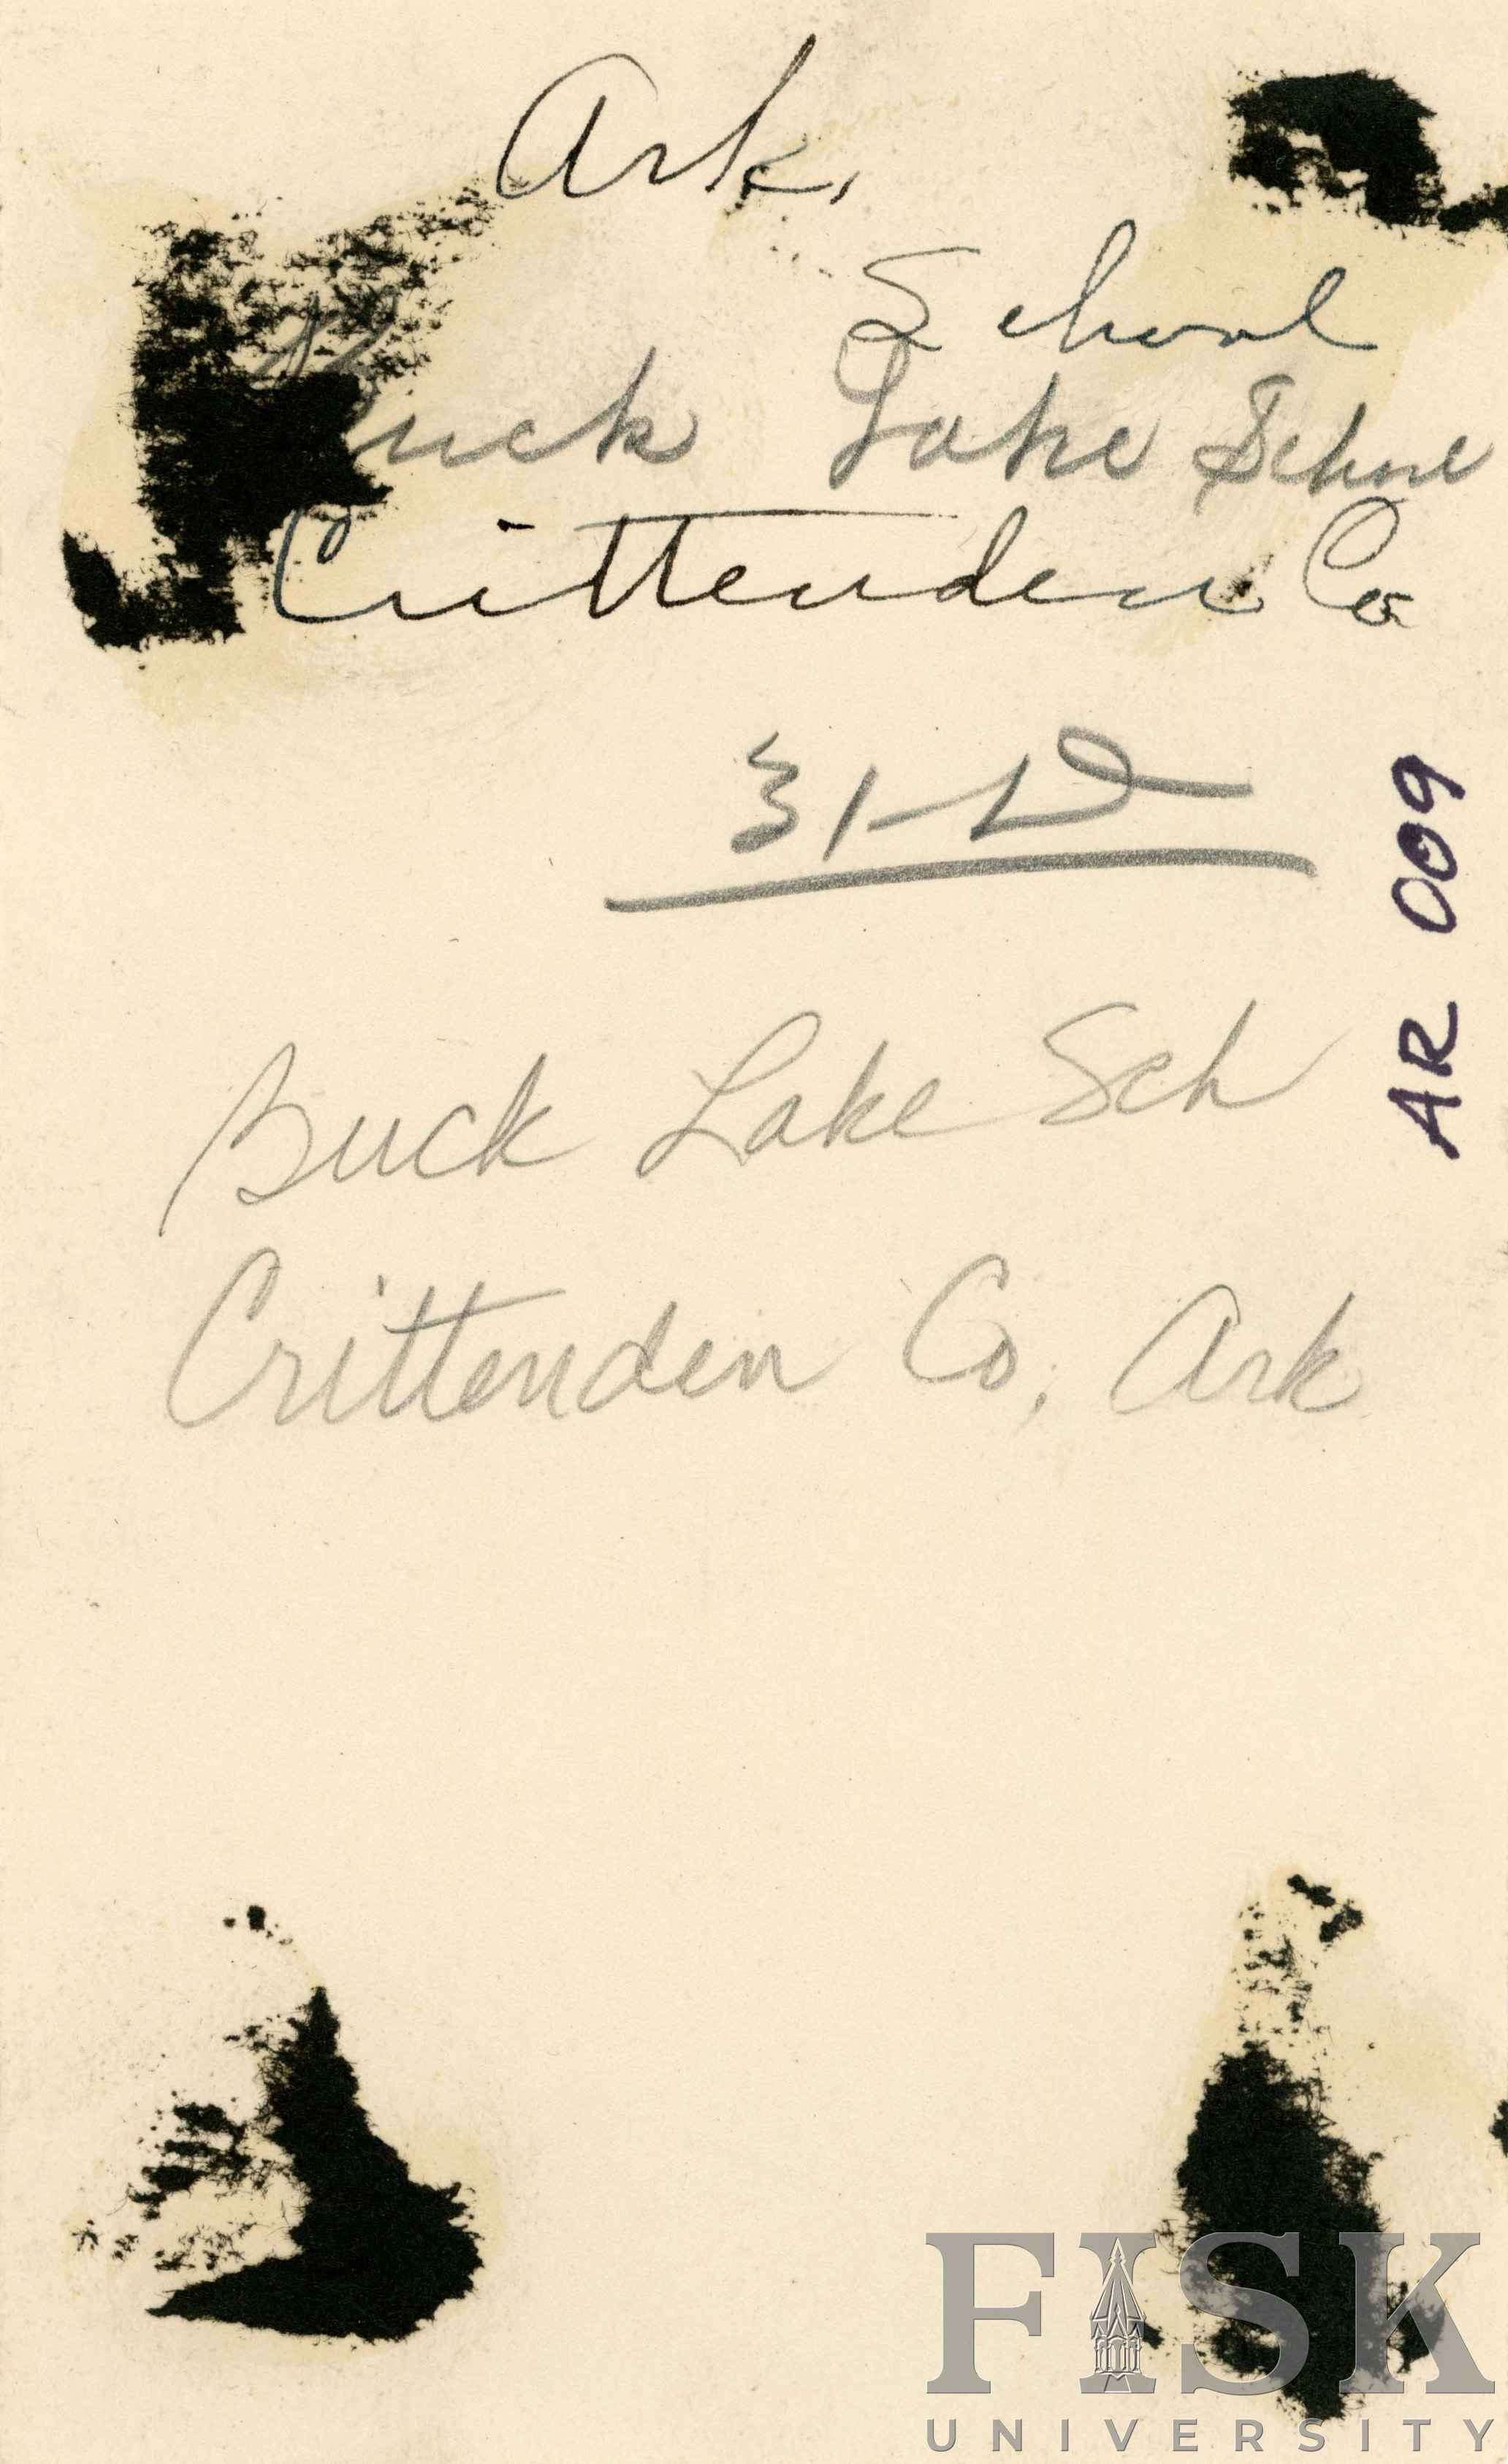 Ark.
School
Buck Lake School
Crittenden Co
31-D
AR 009
Buck Lake Sch
Crittenden Co, Ark
FISK
UNIVERSITY